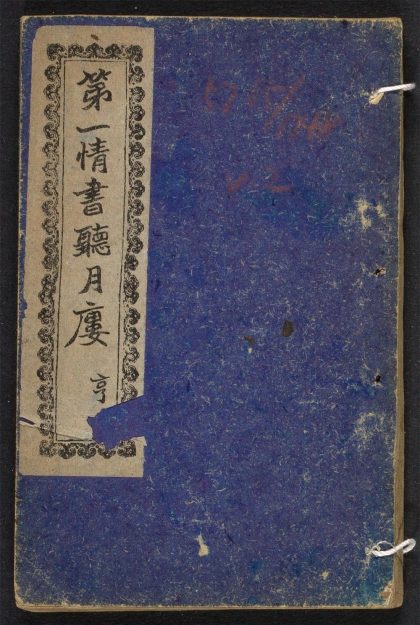 第一情書聽月廔
亨